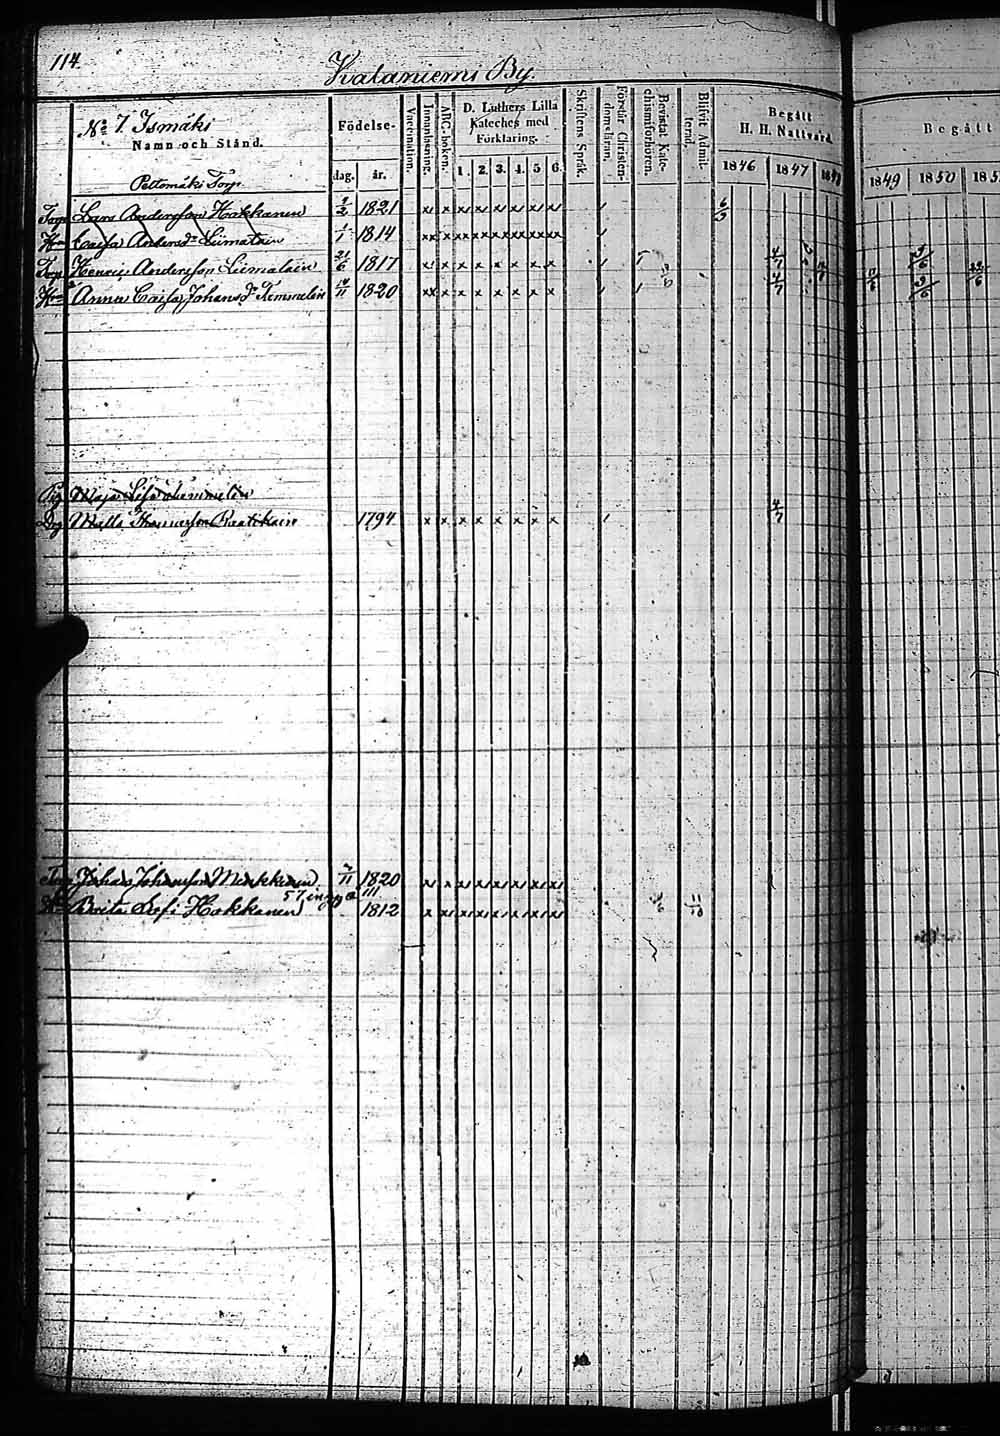 114.
Kalaniemi By.
No 7. Ismäki
Namn och Stånd.
Födelse-
dag. år.
Vaccination.
Innanläsning.
ABC-boken.
D. Luthers Lilla
Kateches med
Förklaring.
1. 2. 3. 4. 5 6.
Skriftens Språk.
Förstår Christen-
domsläran.
Bevistat Kate-
chismiförhören.
Blifvit Admit-
terad.
Begått
H. H. Nattvard.
1846 1847 1848
Begått
1849 1850 185
Peltomäki Torp
Torp Lars Andersson Hakkanen 1821 x x x x x x x x 6/3
Hu Caisa Andersdr Liimatain 1/1 1814 x x x x x x x x
Torp Henric Andersson Liimatain 21/6 1817 x x x x x x x x 4/7 11/6 3/6 22/6
Hu Anna Caisa Johansdr Temmelin 1820 x x x x x x x x 4/7 3/6
Pig Maja Lisa
Drg Matts Thomasson Raatikain 1794 x x x x x x x x 4/7
Johan Johansson Minkkinen 7/11 1820 x x x x x x x x
Brita Sofi Hakkanen 1812 x x x x x x x x